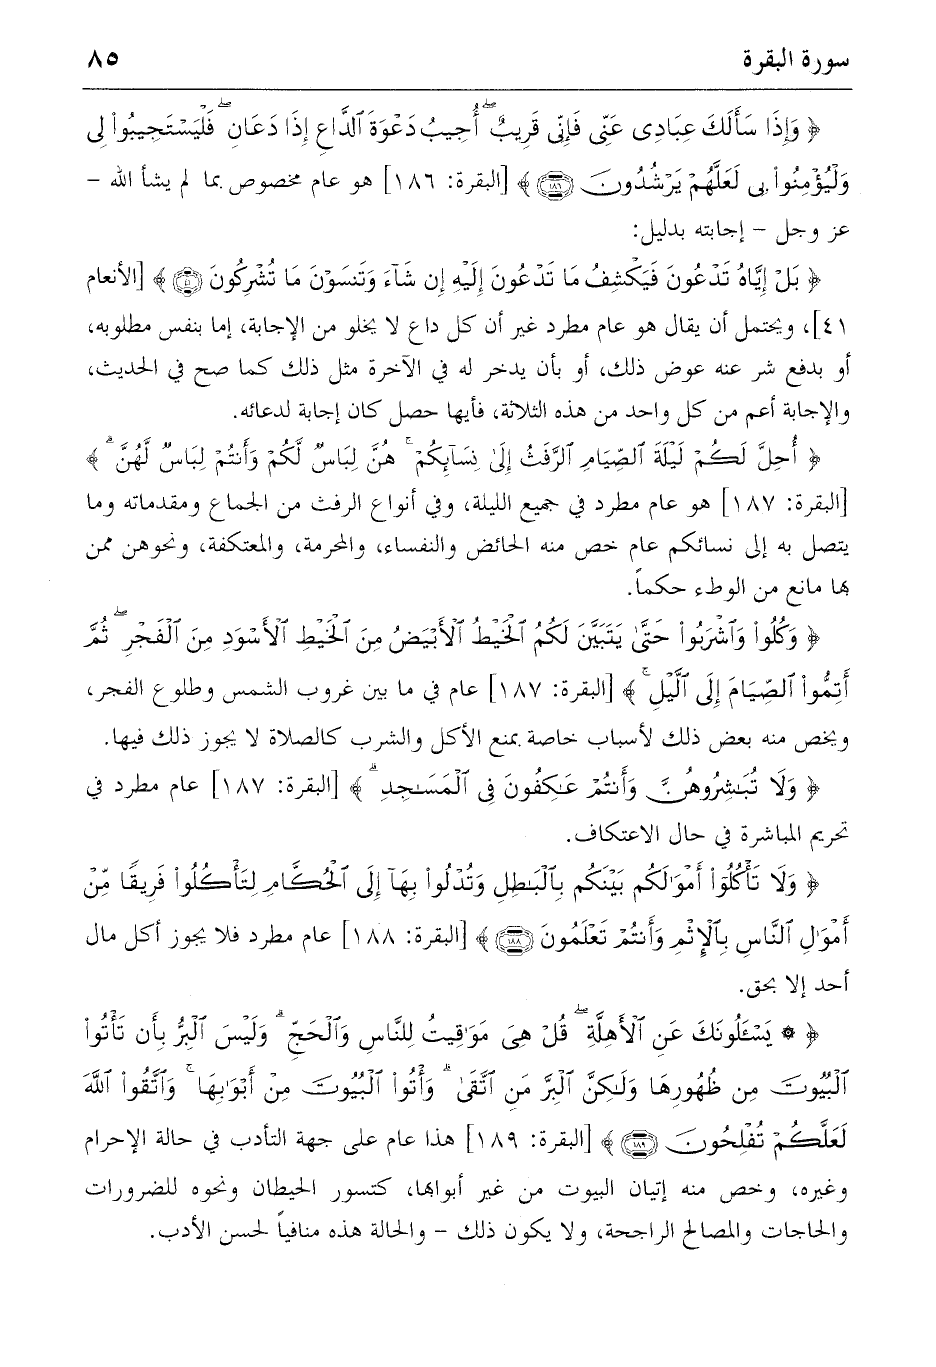 سورة البقرة ٨٥
﴿ وَإِذَا سَأَلَكَ عِبَادِى عَنِّى فَإِنِّى قَرِيبٌ ۖ أُجِيبُ دَعْوَةَ ٱلدَّاعِ إِذَا دَعَانِ ۖ فَلْيَسْتَجِيبُوا۟ لِى
وَلْيُؤْمِنُوا۟ بِى لَعَلَّهُمْ يَرْشُدُونَ ١٨٦ ﴾ [البقرة: ١٨٦] هو عام مخصوص بما لم يشأ الله –
عز وجل – إجابته بدليل:
﴿ بَلْ إِيَّاهُ تَدْعُونَ فَيَكْشِفُ مَا تَدْعُونَ إِلَيْهِ إِن شَآءَ وَتَنسَوْنَ مَا تُشْرِكُونَ ٤١ ﴾ [الأنعام
٤١]، ويحتمل أن يقال هو عام مطرد غير أن كل داع لا يخلو من الإجابة، إما بنفس مطلوبه،
أو بدفع شر عنه عوض ذلك، أو بأن يدخر له في الآخرة مثل ذلك كما صح في الحديث،
والإجابة أعم من كل واحد من هذه الثلاثة، فأيها حصل كان إجابة لدعائه.
﴿ أُحِلَّ لَكُمْ لَيْلَةَ ٱلصِّيَامِ ٱلرَّفَثُ إِلَىٰ نِسَآئِكُمْ ۚ هُنَّ لِبَاسٌ لَّكُمْ وَأَنتُمْ لِبَاسٌ لَّهُنَّ ۗ ﴾
[البقرة: ١٨٧] هو عام مطرد في جميع الليلة، وفي أنواع الرفث من الجماع ومقدماته وما
يتصل به إلى نسائكم عام خص منه الحائض والنفساء، والمحرمة، والمعتكفة، ونحوهن ممن
بها مانع من الوطء حكماً.
﴿ وَكُلُوا۟ وَٱشْرَبُوا۟ حَتَّىٰ يَتَبَيَّنَ لَكُمُ ٱلْخَيْطُ ٱلْأَبْيَضُ مِنَ ٱلْخَيْطِ ٱلْأَسْوَدِ مِنَ ٱلْفَجْرِ ۖ ثُمَّ
أَتِمُّوا۟ ٱلصِّيَامَ إِلَى ٱلَّيْلِ ۚ ﴾ [البقرة: ١٨٧] عام في ما بين غروب الشمس وطلوع الفجر،
ويخص منه بعض ذلك لأسباب خاصة بمنع الأكل والشرب كالصلاة لا يجوز ذلك فيها.
﴿ وَلَا تُبَـٰشِرُوهُنَّ وَأَنتُمْ عَـٰكِفُونَ فِى ٱلْمَسَـٰجِدِ ۗ ﴾ [البقرة: ١٨٧] عام مطرد في
تحريم المباشرة في حال الاعتكاف.
﴿ وَلَا تَأْكُلُوٓا۟ أَمْوَٰلَكُم بَيْنَكُم بِٱلْبَـٰطِلِ وَتُدْلُوا۟ بِهَآ إِلَى ٱلْحُكَّامِ لِتَأْكُلُوا۟ فَرِيقًا مِّنْ
أَمْوَٰلِ ٱلنَّاسِ بِٱلْإِثْمِ وَأَنتُمْ تَعْلَمُونَ ١٨٨ ﴾ [البقرة: ١٨٨] عام مطرد فلا يجوز أكل مال
أحد إلا بحق.
﴿ ۞ يَسْـَٔلُونَكَ عَنِ ٱلْأَهِلَّةِ ۖ قُلْ هِىَ مَوَٰقِيتُ لِلنَّاسِ وَٱلْحَجِّ ۗ وَلَيْسَ ٱلْبِرُّ بِأَن تَأْتُوا۟
ٱلْبُيُوتَ مِن ظُهُورِهَا وَلَـٰكِنَّ ٱلْبِرَّ مَنِ ٱتَّقَىٰ ۗ وَأْتُوا۟ ٱلْبُيُوتَ مِنْ أَبْوَٰبِهَا ۚ وَٱتَّقُوا۟ ٱللَّهَ
لَعَلَّكُمْ تُفْلِحُونَ ١٨٩ ﴾ [البقرة: ١٨٩] هذا عام على جهة التأدب في حالة الإحرام
وغيره، وخص منه إتيان البيوت من غير أبوابها، كتسور الحيطان ونحوه للضرورات
والحاجات والمصالح الراجحة، ولا يكون ذلك – والحالة هذه منافياً لحسن الأدب.